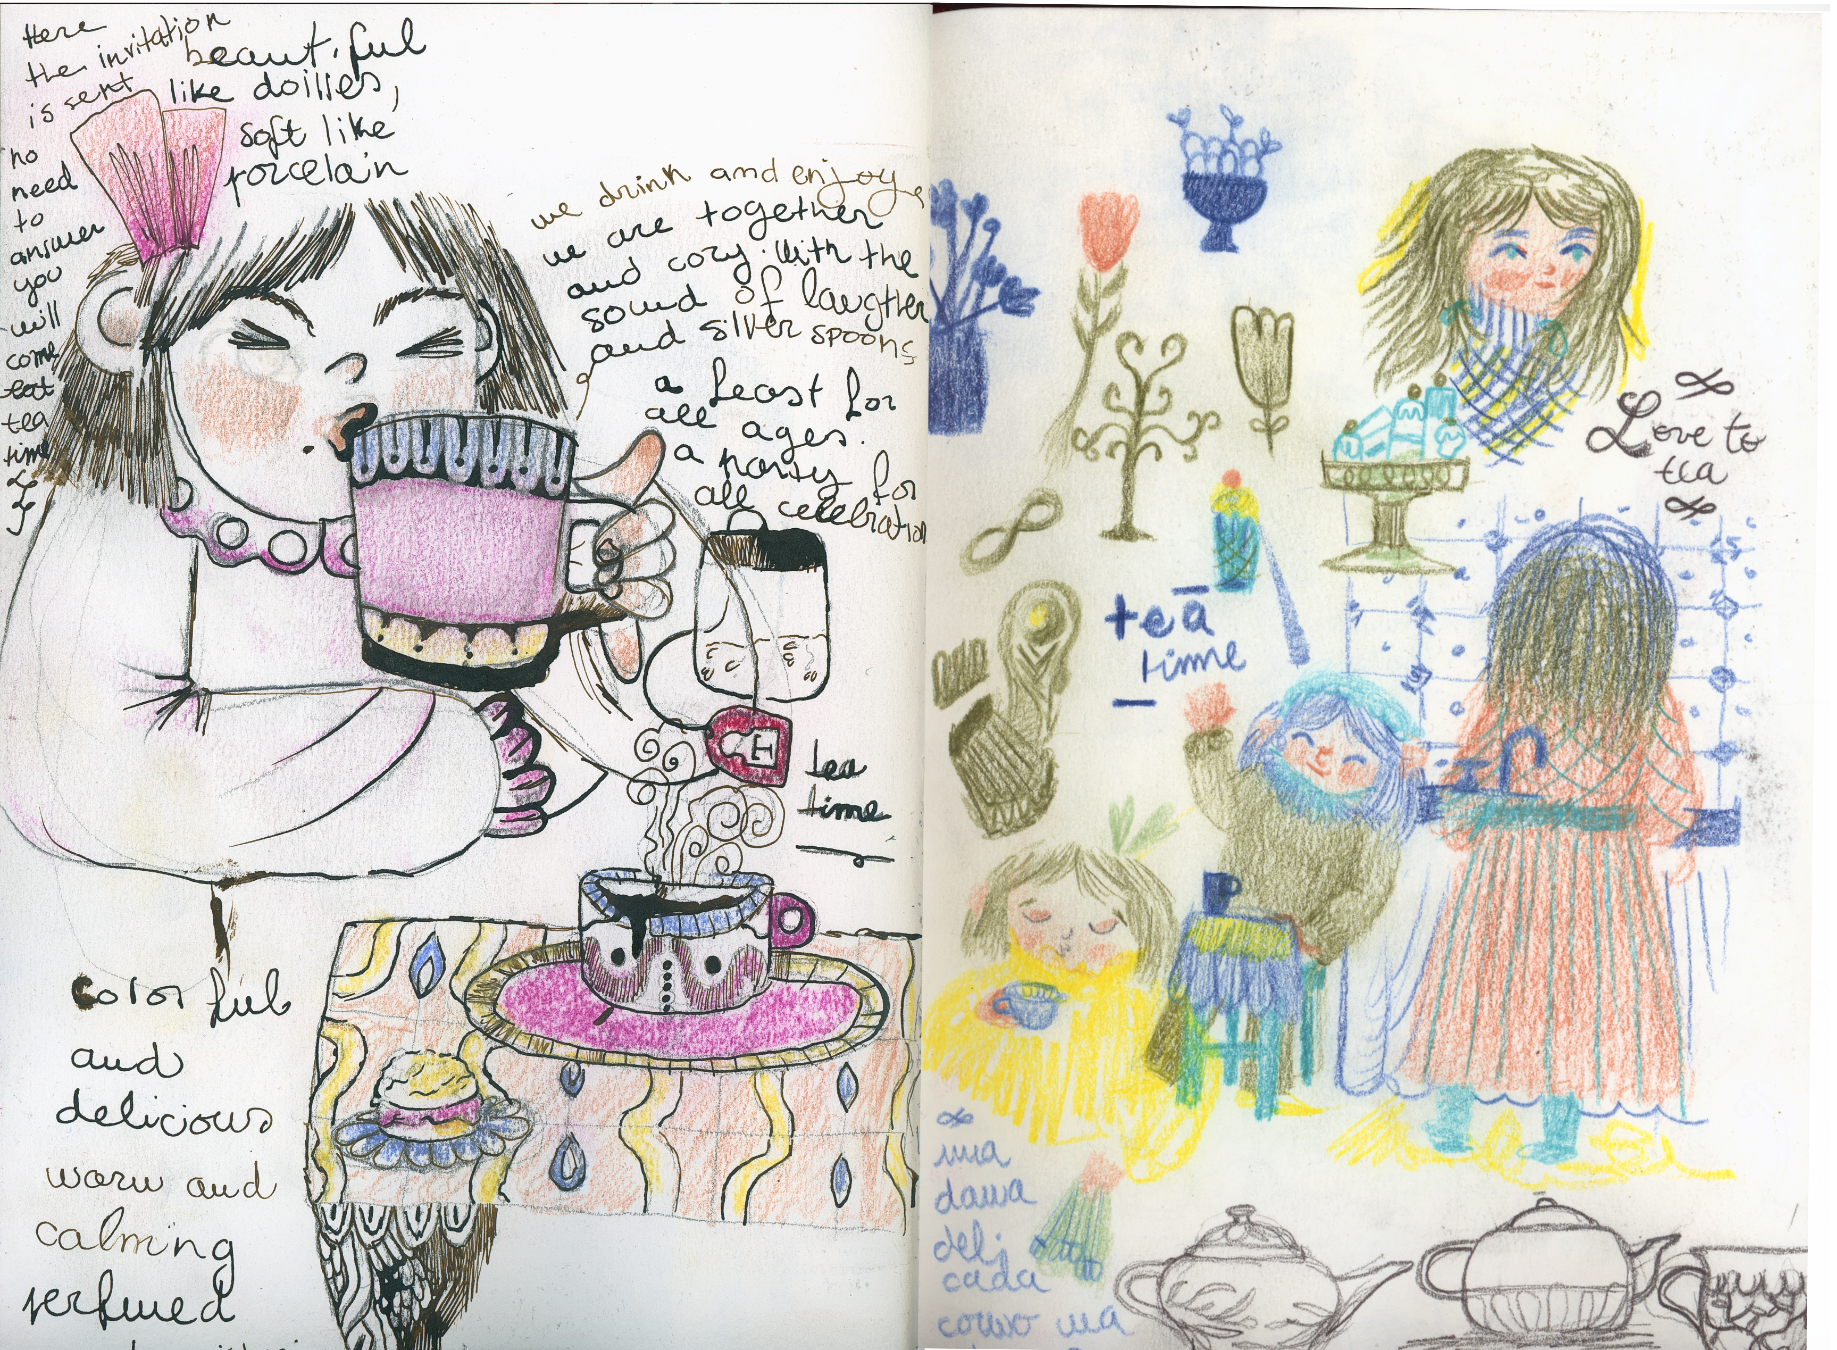 Here
the invitation
is sent
no
need
to
answer
you
will
come
tea
time
beautiful
like doilles,
soft like
porcelain
we drink and enjoy
we are together
and cozy. With the
sound of laugther
and silver spoons
a feast for
all ages.
a party for
all celebration
tea
time
colorful
and
delicious
warm and
calming
perfumed
Love to
tea
tea
time
uma
dama
deli
cada
como uma